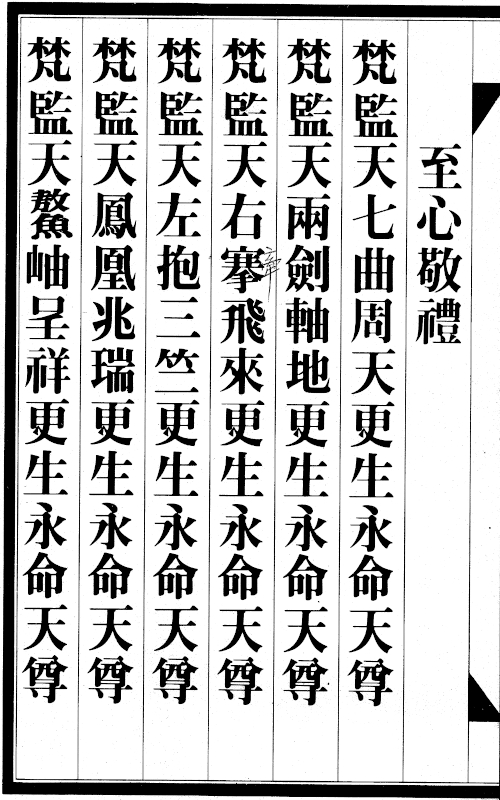 至心敬禮
梵監天七曲周天更生永命天尊
梵監天兩劍軸地更生永命天尊
梵監天右搴飛來更生永命天尊
梵監天左抱三竺更生永命天尊
梵監天鳳凰兆瑞更生永命天尊
梵監天鰲岫呈祥更生永命天尊